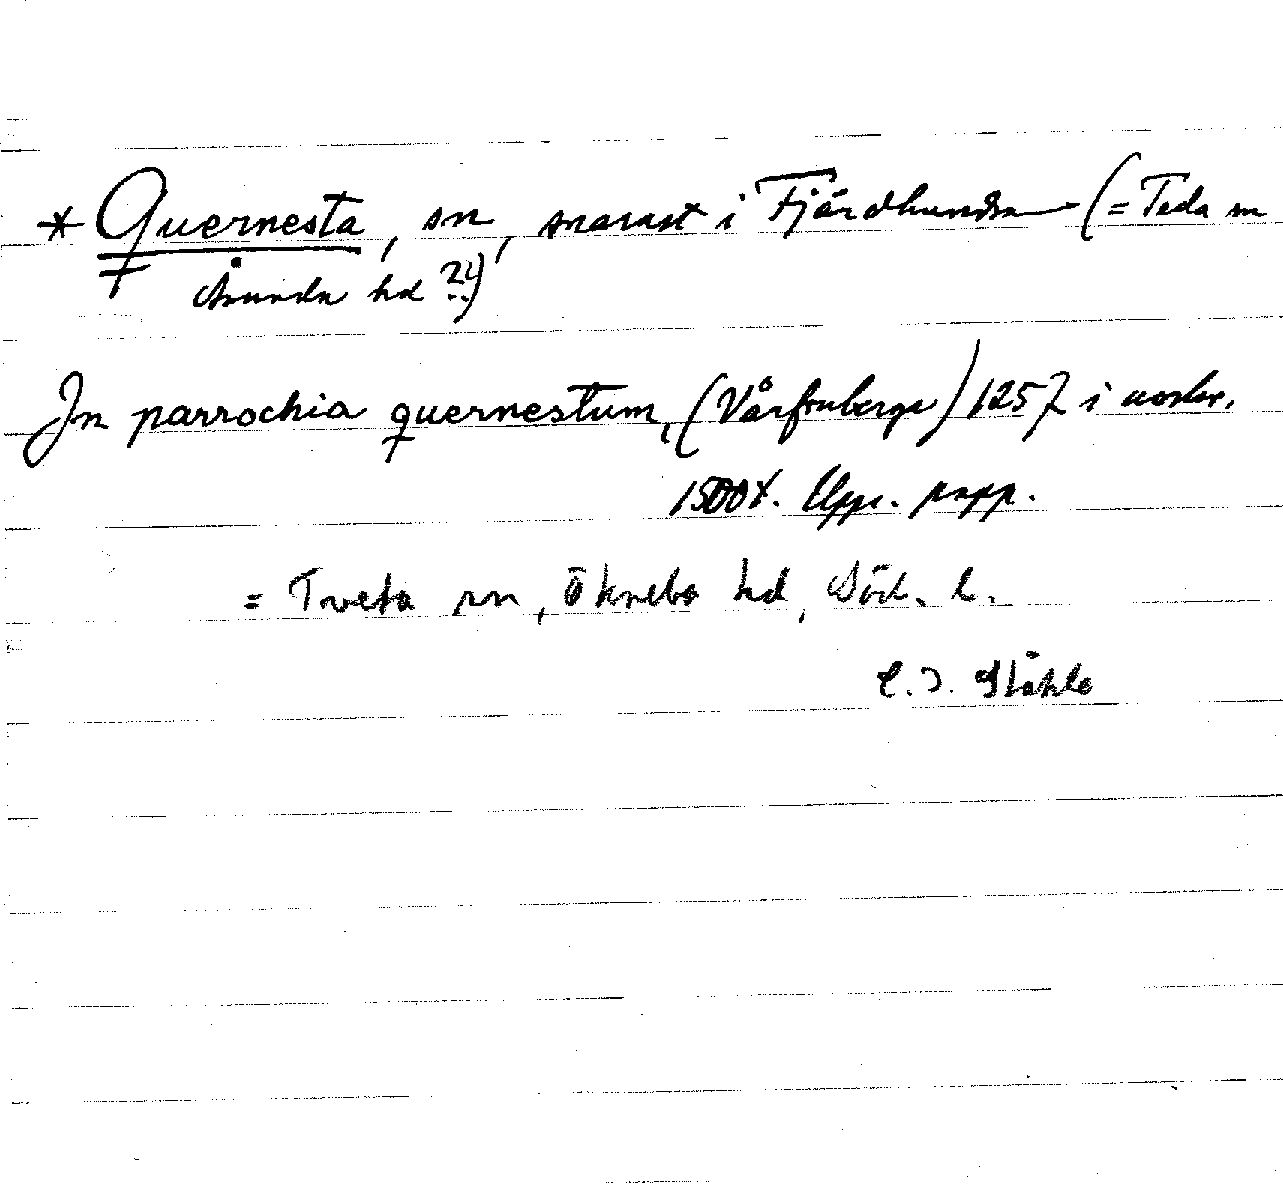 * Quernesta, sn, snarast i Fjärdhundra (= Teda sn
Åsunda hd ??)
In parrochia quernestum, (Vårfruberga) 1257 i avskr.
1500t. Upps. papp.
= Tveta sn, Öknebo hd, Söd. l.
C. I. Ståhle